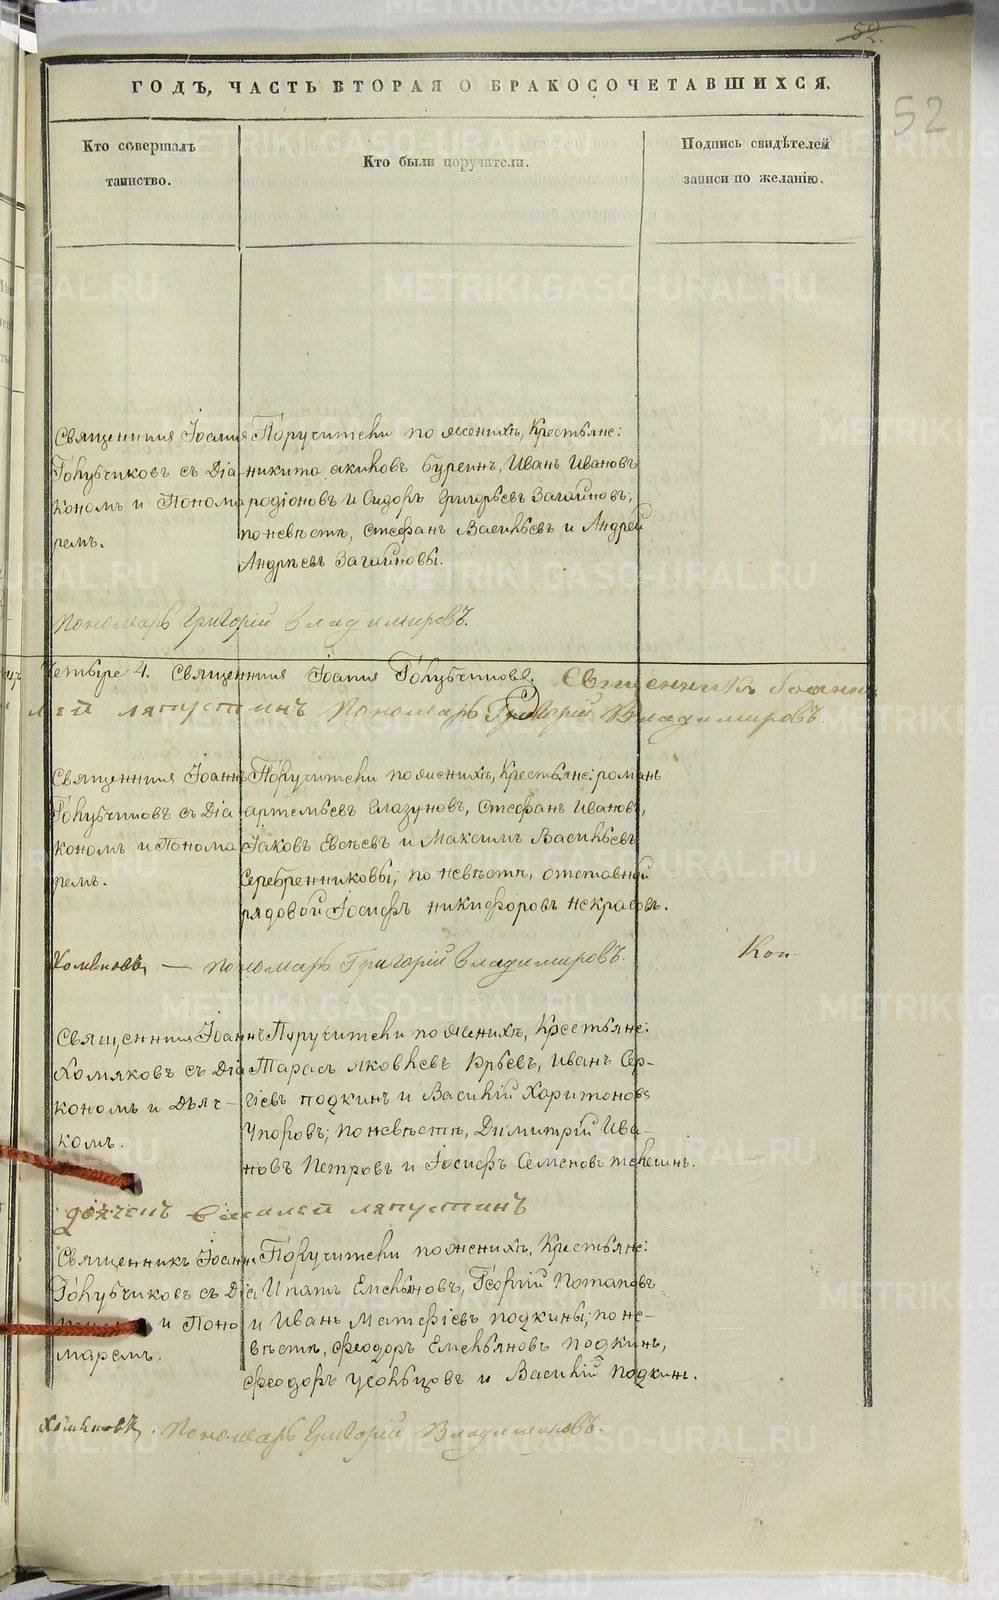 52.
52
ГОДЪ, ЧАСТЬ ВТОРАЯ О БРАКОСОЧЕТАВШИХСЯ.
Кто совершалъ таинство.
Кто были поручители.
Подпись свидѣтелей записи по желанію.
Священникъ Іоаннъ
Голубчиковъ съ Діа-
кономъ и Понома-
ремъ.
Поручители по женихѣ, Крестьяне:
никита акиловъ Буреинъ, Иванъ Ивановъ
родіоновъ и Сидоръ Григорьевъ Загайновъ;
по невѣстѣ, Стефанъ Васильевъ и Андрей
Андрѣевъ Загайновы.
Пономарь Григорій Владимировъ.
Четыре 4. Священникъ Іоаннъ Голубчиковъ. Священникъ Іоаннъ
лей ляпустинъ Пономарь Григорій Владимировъ.
Священникъ Іоаннъ
Голубчиковъ съ Діа-
кономъ и Понома-
ремъ.
Поручители по женихѣ, Крестьяне: романъ
артемьевъ Глазуновъ, Стефанъ Ивановъ,
Іаковъ Евсѣевъ и Максимъ Васильевъ
Серебренниковы; по невѣстѣ, отставной
рядовой Іосифъ никифоровъ некрасовъ.
Хомяковъ — пономарь Григорій Владимировъ.
Коп-
Священникъ Іоаннъ
Хомяковъ съ Діа-
кономъ и Дьяч-
комъ.
Поручители по женихѣ, Крестьяне:
Тарасъ яковлевъ Юрьевъ, Иванъ Сер-
гіевъ подкинъ и Василій Харитоновъ
Упоровъ; по невѣстѣ, Димитрій Ива-
новъ Петровъ и Іосифъ Семеновъ
дьячекъ василей ляпустинъ
Священникъ Іоаннъ
Голубчиковъ съ Діа-
и Поно-
маремъ.
Поручители по женихѣ, Крестьяне:
Ипатъ Емельяновъ, Георгій Потаповъ
и Иванъ Матфіевъ подкины; по не-
вѣстѣ, феодоръ Емельяновъ подкинъ,
феодоръ Усольцовъ и Василій подкинъ.
Хомяковъ. Пономарь Григорій Владимировъ.
METRIKI.GASO-URAL.RU